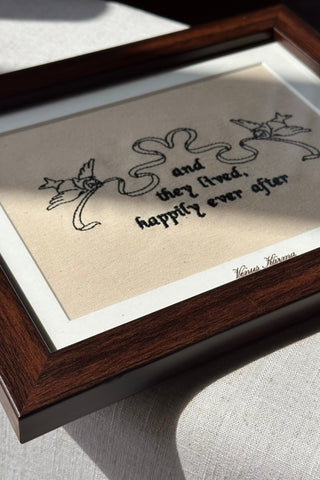 and
they lived,
happily ever after
Venus Karma